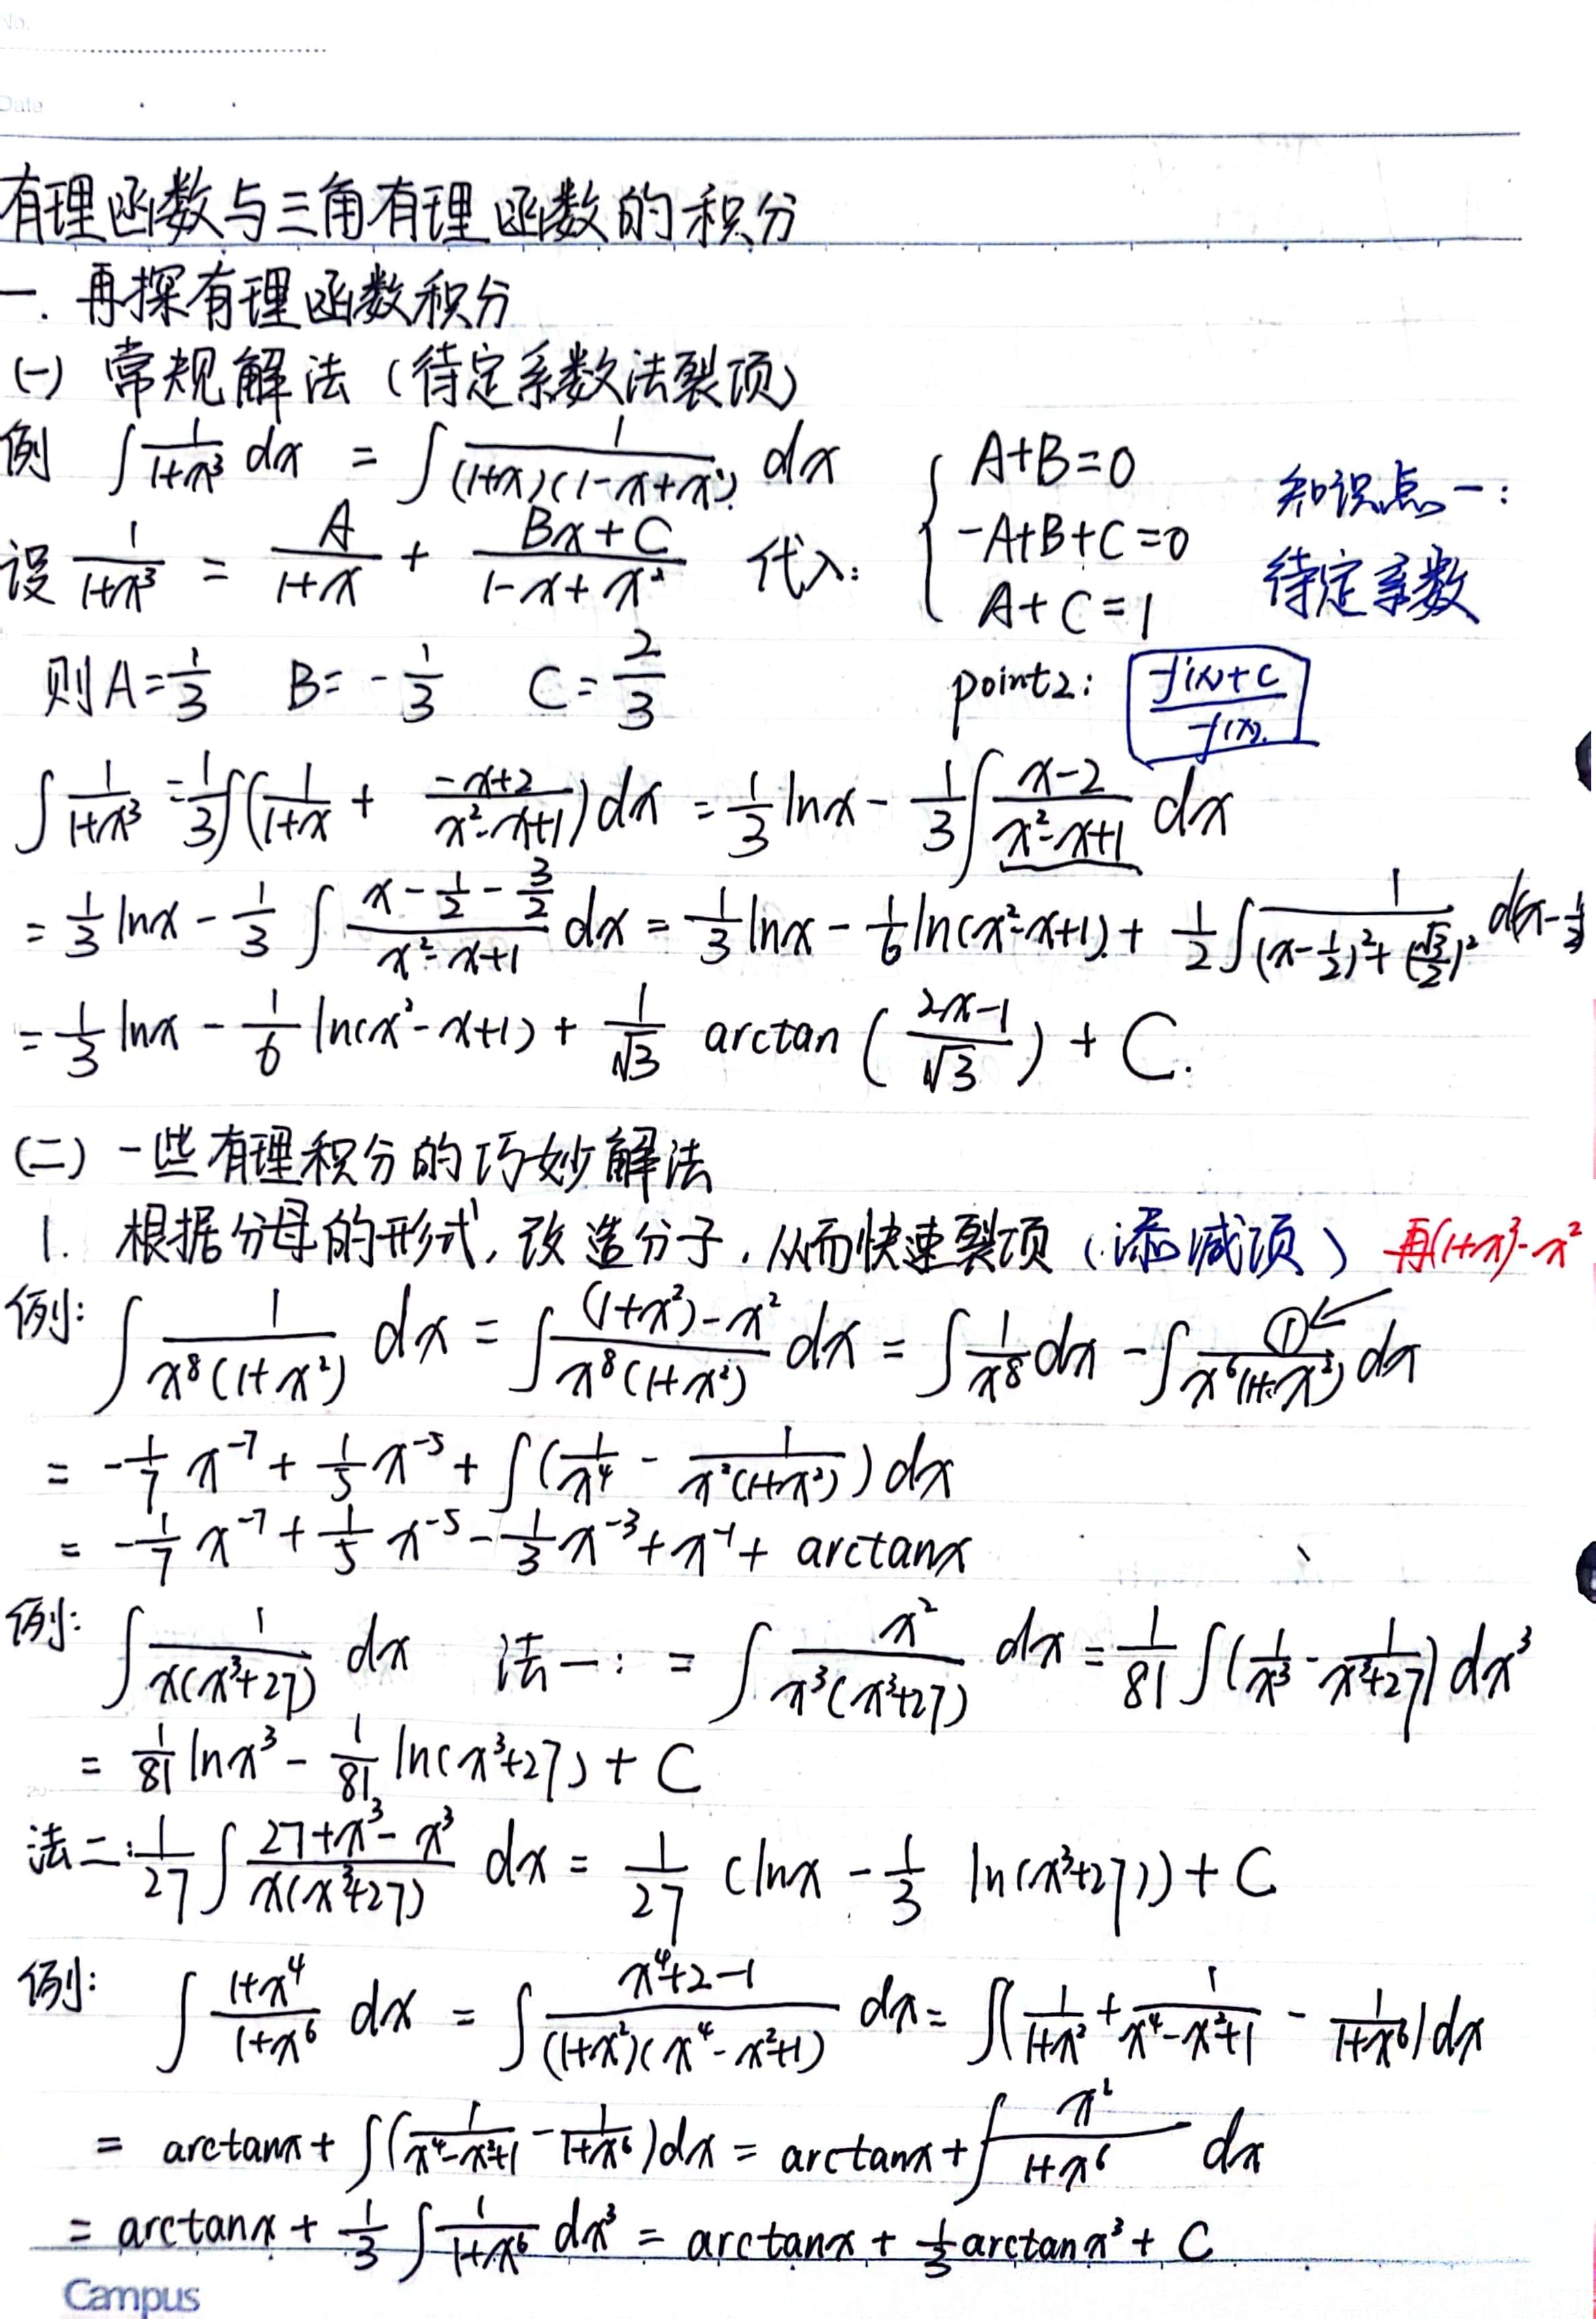 No.
Date
有理函数与三角有理函数的积分
一. 再探有理函数积分
(一) 常规解法 (待定系数法裂项)
例 ∫ 1/(1+x³) dx = ∫ 1/((1+x)(1-x+x²)) dx { A+B=0
设 1/(1+x³) = A/(1+x) + (Bx+C)/(1-x+x²) 代入: -A+B+C=0
A+C=1
知识点一:
待定系数
则A=1/3 B=-1/3 C=2/3
point2: (f'(x)+C)/f(x)
∫ 1/(1+x³) = 1/3 ∫(1/(1+x) + (-x+2)/(x²-x+1)) dx = 1/3 lnx - 1/3 ∫ (x-2)/(x²-x+1) dx
= 1/3 lnx - 1/3 ∫ (x-1/2-3/2)/(x²-x+1) dx = 1/3 lnx - 1/6 ln(x²-x+1) + 1/2 ∫ 1/((x-1/2)²+(√3/2)²) d(x-1/2
= 1/3 lnx - 1/6 ln(x²-x+1) + 1/√3 arctan ((2x-1)/√3) + C.
(二) 一些有理积分的巧妙解法
1. 根据分母的形式, 改造分子, 从而快速裂项 (添减项) 再(1+x)²-x²
例: ∫ 1/(x⁸(1+x²)) dx = ∫ ((1+x²)-x²)/(x⁸(1+x²)) dx = ∫ 1/x⁸ dx - ∫ ①/(x⁶(1+x²)) dx
= -1/7 x⁻⁷ + 1/5 x⁻⁵ + ∫(1/x⁴ - 1/(x²(1+x²))) dx
= -1/7 x⁻⁷ + 1/5 x⁻⁵ - 1/3 x⁻³ + x⁻¹ + arctanx
例: ∫ 1/(x(x³+27)) dx 法一: = ∫ x²/(x³(x³+27)) dx = 1/81 ∫(1/x³ - 1/(x³+27)) dx³
= 1/81 lnx³ - 1/81 ln(x³+27) + C
法二: 1/27 ∫ (27+x³-x³)/(x(x³+27)) dx = 1/27 (lnx - 1/3 ln(x³+27)) + C
例: ∫ (1+x⁴)/(1+x⁶) dx = ∫ (x⁴+2-1)/((1+x²)(x⁴-x²+1)) dx = ∫(1/(1+x²) + 1/(x⁴-x²+1) - 1/(1+x⁶)) dx
= arctanx + ∫(1/(x⁴-x²+1) - 1/(1+x⁶)) dx = arctanx + ∫ x²/(1+x⁶) dx
= arctanx + 1/3 ∫ 1/(1+x⁶) dx³ = arctanx + 1/3 arctanx³ + C
Campus